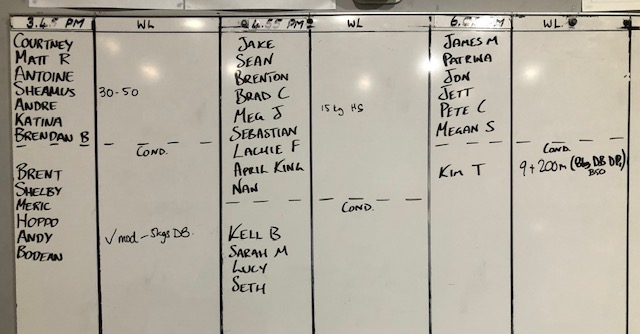 3.45 PM WL
COURTNEY
MATT R
ANTOINE
SHEAMUS 30-50
ANDRE
KATINA
BRENDAN B
COND.
BRENT
SHELBY
MERIC
HOPPO
ANDY √ mod - 5kgs DB.
BODEAN
4.55 PM WL
JAKE
SEAN
BRENTON
BRAD C
MEG J 15kg HS
SEBASTIAN
LACHIE F
APRIL KING
NAN
COND.
KELL B
SARAH M
LUCY
SETH
PM WL
JAMES M
PATRINA
JON
JETT
PETE C
MEGAN S
COND.
KIM T 9 + 200m (8kg DB DP,
BSO